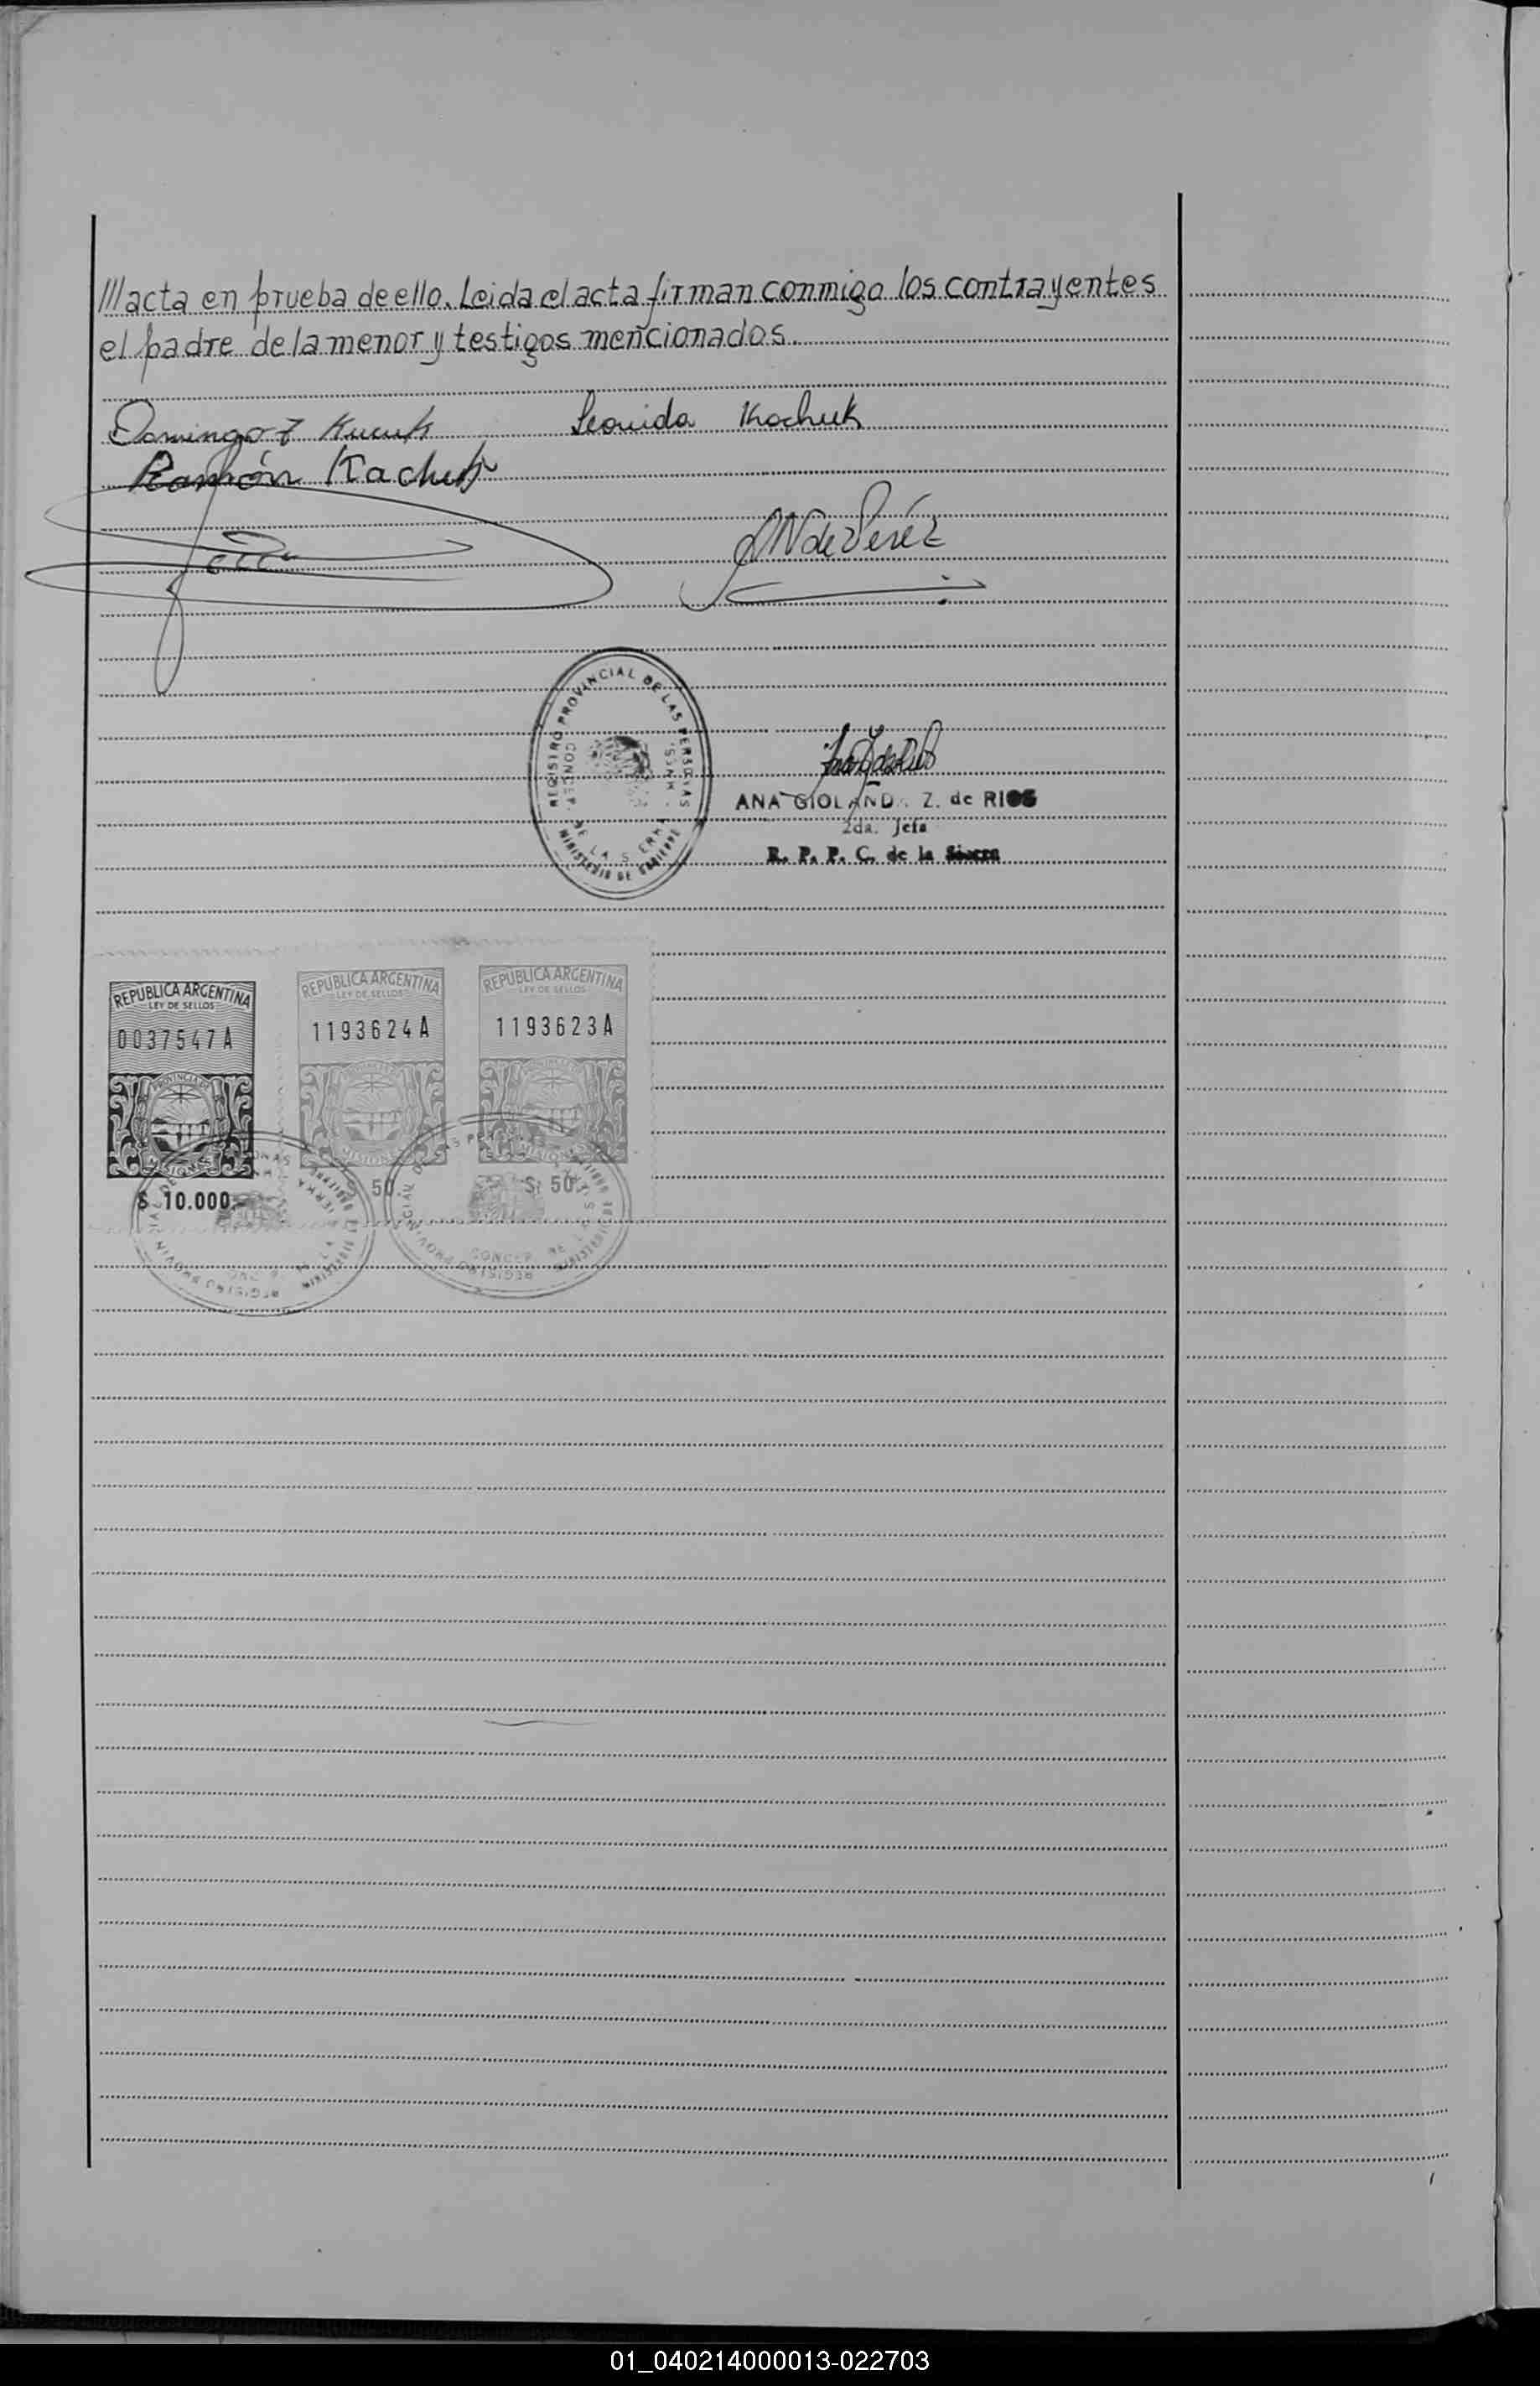 ///acta en prueba de ello. Leida el acta firman conmigo los contrayentes
el padre de la menor y testigos mencionados.
Domingo Kucuk Leonida Kochuk
Ramón Kachuk
N de Peréz
REGISTRO PROVINCIAL DE LAS PERSONAS
CONCEP. DE LA SIERRA
MINISTERIO DE GOBIERNO
ANA GIOLANDA Z. de RIOS
2da. Jefa
R. P. P. C. de la Sierra
REPUBLICA ARGENTINA REPUBLICA ARGENTINA REPUBLICA ARGENTINA
LEY DE SELLOS LEY DE SELLOS LEY DE SELLOS
0037547A 1193624A 1193623A
PROVINCIA DE
MISIONES MISIONES MISIONES
$ 10.000 50 $ 50
CONCEP. DE LA
REGISTRO PROVINCIAL
REGISTRO PROVINCIAL
01_040214000013-022703